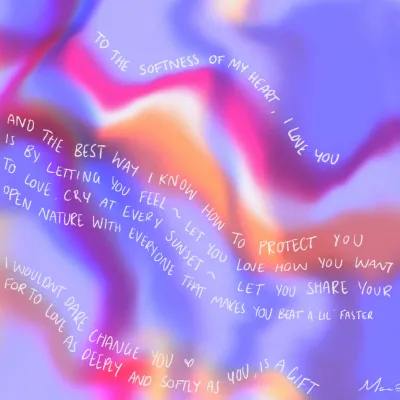 TO THE SOFTNESS OF MY HEART, I LOVE YOU
AND THE BEST WAY I KNOW HOW TO PROTECT YOU
IS BY LETTING YOU FEEL ~ LET YOU LOVE HOW YOU WANT
TO LOVE. CRY AT EVERY SUNSET ~ LET YOU SHARE YOUR
OPEN NATURE WITH EVERYONE THAT MAKES YOU BEAT A LIL' FASTER
I WOULDN'T DARE CHANGE YOU ♡
FOR TO LOVE AS DEEPLY AND SOFTLY AS YOU, IS A GIFT